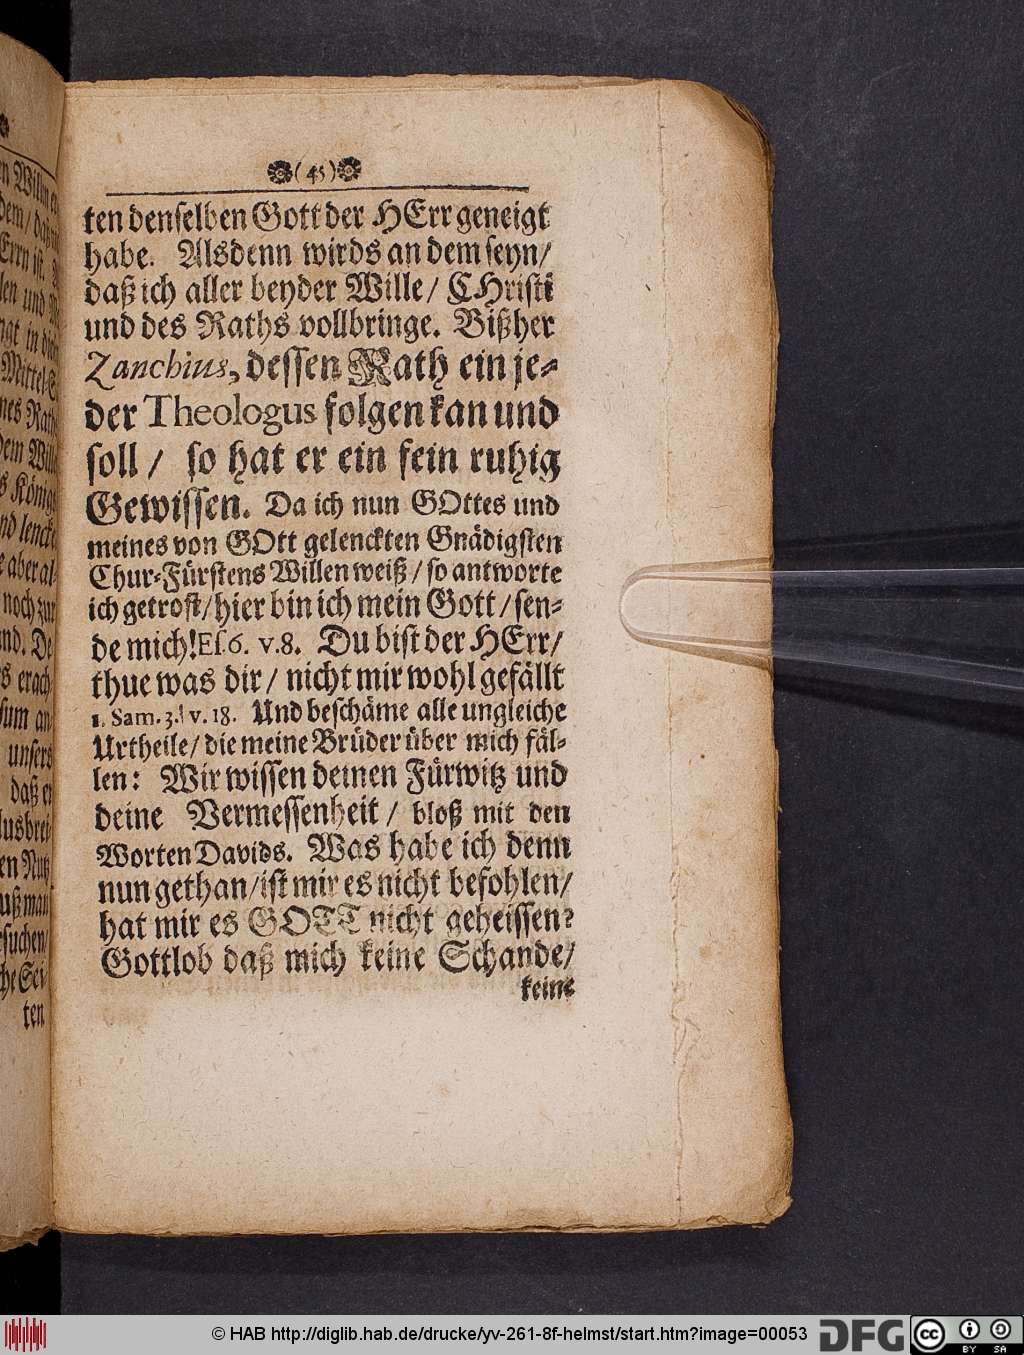 ( 45 )
ten denselben Gott der HErr geneigt
habe. Alsdenn wirds an dem seyn/
daß ich aller beyder Wille/ CHristi
und des Raths vollbringe. Bißher
Zanchius, dessen Rath ein je-
der Theologus folgen kan und
soll / so hat er ein fein ruhig
Gewissen. Da ich nun GOttes und
meines von GOtt gelenckten Gnädigsten
Chur-Fürstens Willen weiß / so antworte
ich getrost/ hier bin ich mein Gott / sen-
de mich! Es. 6. v. 8. Du bist der HErr/
thue was dir / nicht mir wohl gefällt
1. Sam. 3. v. 18. Und beschäme alle ungleiche
Urtheile/ die meine Brüder über mich fäl-
len: Wir wissen deinen Fürwitz und
deine Vermessenheit / bloß mit den
Worten Davids. Was habe ich denn
nun gethan/ ist mir es nicht befohlen/
hat mir es GOTT nicht geheissen?
Gottlob daß mich keine Schande/
keine
dem/ daß
HErrn ist.
len und
ngt in die
Mittel-
nes Rath
dem Wille
s König
nd lencke
e aber al-
noch zur
and. De
s erach
sum an
unsers
daß er
Ausbrei-
en Nutz
uß man
suchen/
che Sei-
ten
© HAB http://diglib.hab.de/drucke/yv-261-8f-helmst/start.htm?image=00053
DFG
cc
BY SA